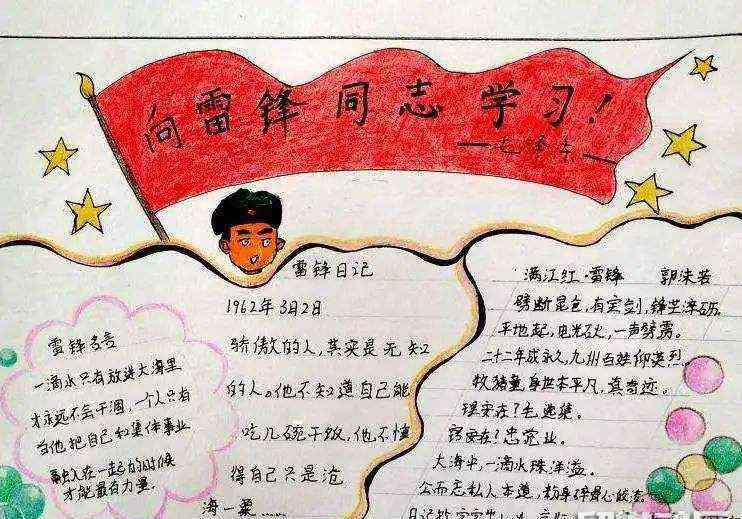 向雷锋同志学习!
——毛泽东
雷锋名言
一滴水只有放进大海里
才永远不会干涸,一个人只有
当他把自己和集体事业
融入在一起的时候
才能最有力量。
雷锋日记
1962年3月2日
骄傲的人,其实是无知
的人。他不知道自己能
吃几碗干饭,他不懂
得自己只是沧
海一粟……
满江红·雷锋 郭沫若
劈断昆仑,有宝剑,锋芒淬砺.
平地起,电光石火,一声劈雳。
二十二年成永久,九州百姓仰英烈.
牧猪童,身世本平凡,真奇迹。
理安在?毛选集。
窍安在?忠党业。
大海中,一滴水珠洋溢。
公而忘私人本道,粉身碎骨心皎洁
日记